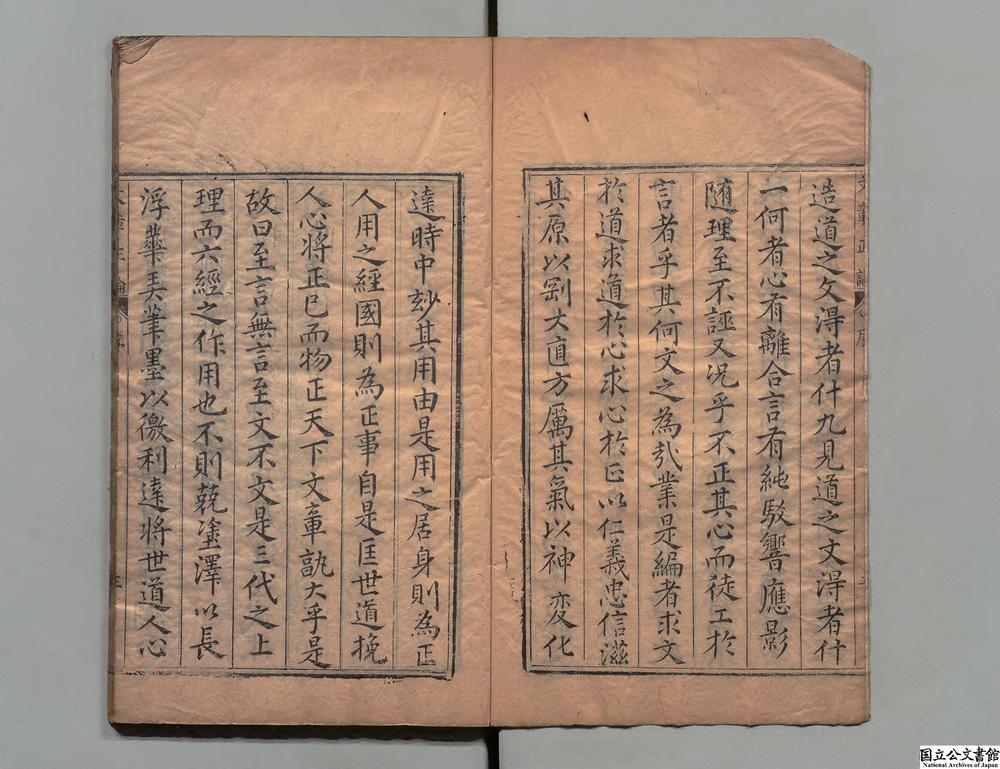 造道之文淂者什九見道之文淂者什
一何者心有離合言有純駁響應影
随理至不誣又况乎不正其心而徒工於
言者乎其何文之為㢤業是編者求文
於道求道於心求心於正以仁義忠信滋
其原以剛大直方厲其氣以神変化
達時中玅其用由是用之居身則為正
人用之經國則為正事自是匡世道挽
人心將正已而物正天下文章孰大乎是
故曰至言無言至文不文是三代之上
理而六經之作用也不則競塗澤以長
浮華美筆墨以徼利逺將世道人心
国立公文書館
National Archives of Japan